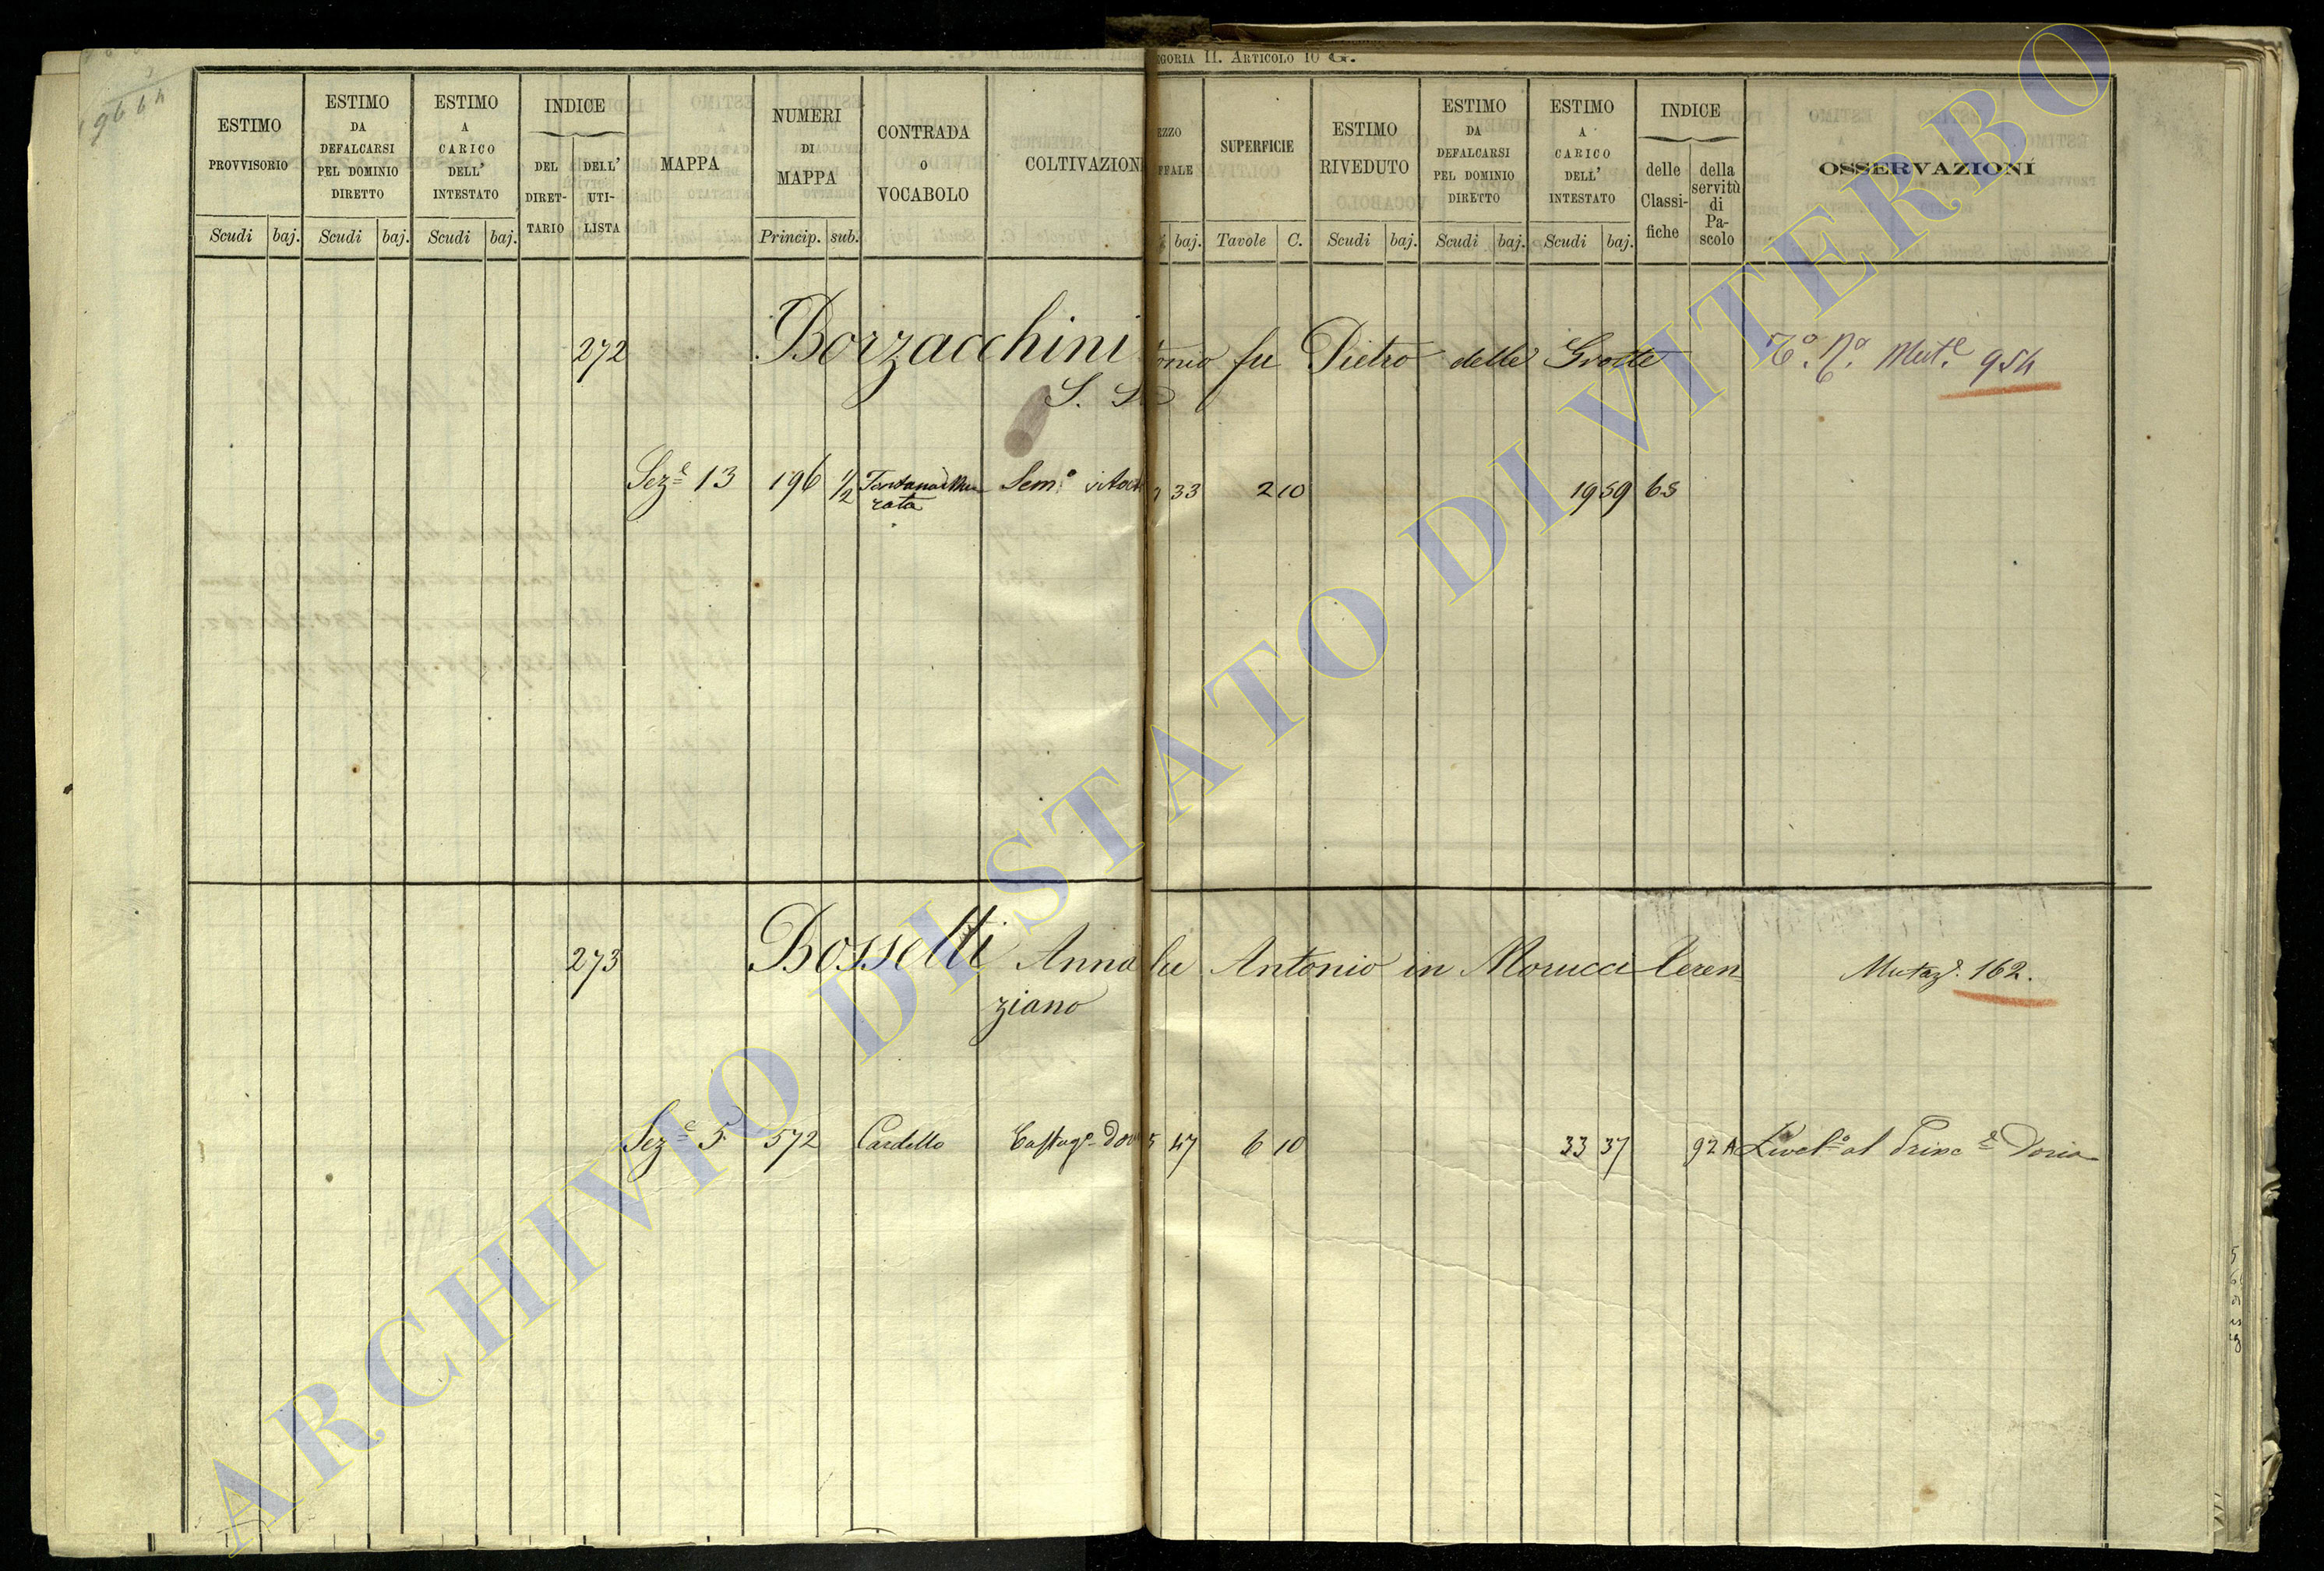 EGORIA II. ARTICOLO 10 G.
ESTIMO PROVVISORIO
ESTIMO DA DEFALCARSI PEL DOMINIO DIRETTO
ESTIMO A CARICO DELL' INTESTATO
INDICE
DEL DIRET-TARIO
DELL' UTI-LISTA
MAPPA
NUMERI DI MAPPA
CONTRADA O VOCABOLO
COLTIVAZIONI
EZZO
SUPERFICIE
ESTIMO RIVEDUTO
ESTIMO DA DEFALCARSI PEL DOMINIO DIRETTO
ESTIMO A CARICO DELL' INTESTATO
INDICE
delle Classi-fiche
della servitù di Pa-scolo
OSSERVAZIONI
Scudi baj. Scudi baj. Scudi baj. Princip. sub. baj. Tavole C. Scudi baj. Scudi baj. Scudi baj.
272 Borzacchini onio fu Pietro delle Grotte Mut.e 954
S. S
Seze 13 196 1/2 Sem.o 33 2 10 19 59 65
rata
273 Bosselli Anna fu Antonio in Morucci Teren
ziano
Mutaz.e 162.
Seze 5 572 Cardello Castag.e 5 47 6 10 33 37 92 A Livel.o al Princ.e Doria
ARCHIVIO DI STATO DI VITERBO